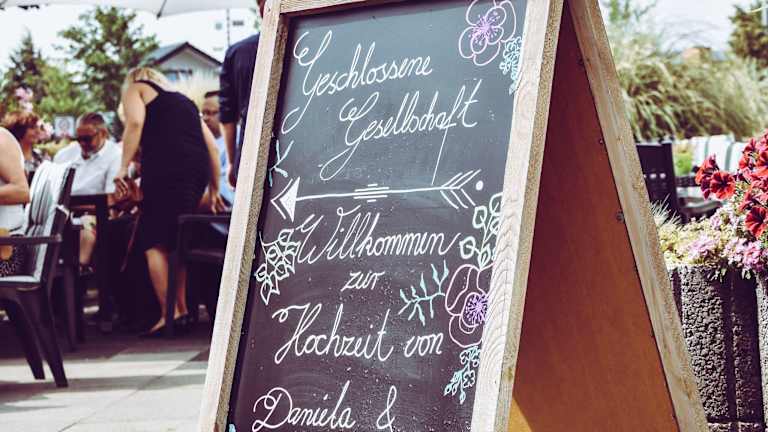 Geschlossene
Gesellschaft
Willkommen
zur
Hochzeit von
Daniela &